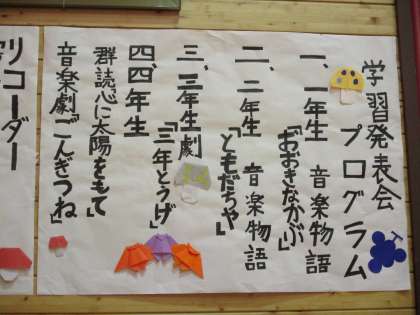 学習発表会
プログラム
一、一年生 音楽物語
「おおきなかぶ」
二、二年生 音楽物語
「ともだちや」
三、三年生 劇
「三年とうげ」
四、四年生
群読「心に太陽をもて」
音楽劇「ごんぎつね」
リコーダー